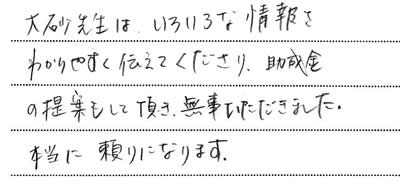 大砂先生は、いろいろな情報を
わかりやすく伝えてくださり、助成金
の提案もして頂き、無事いただきました。
本当に頼りになります。